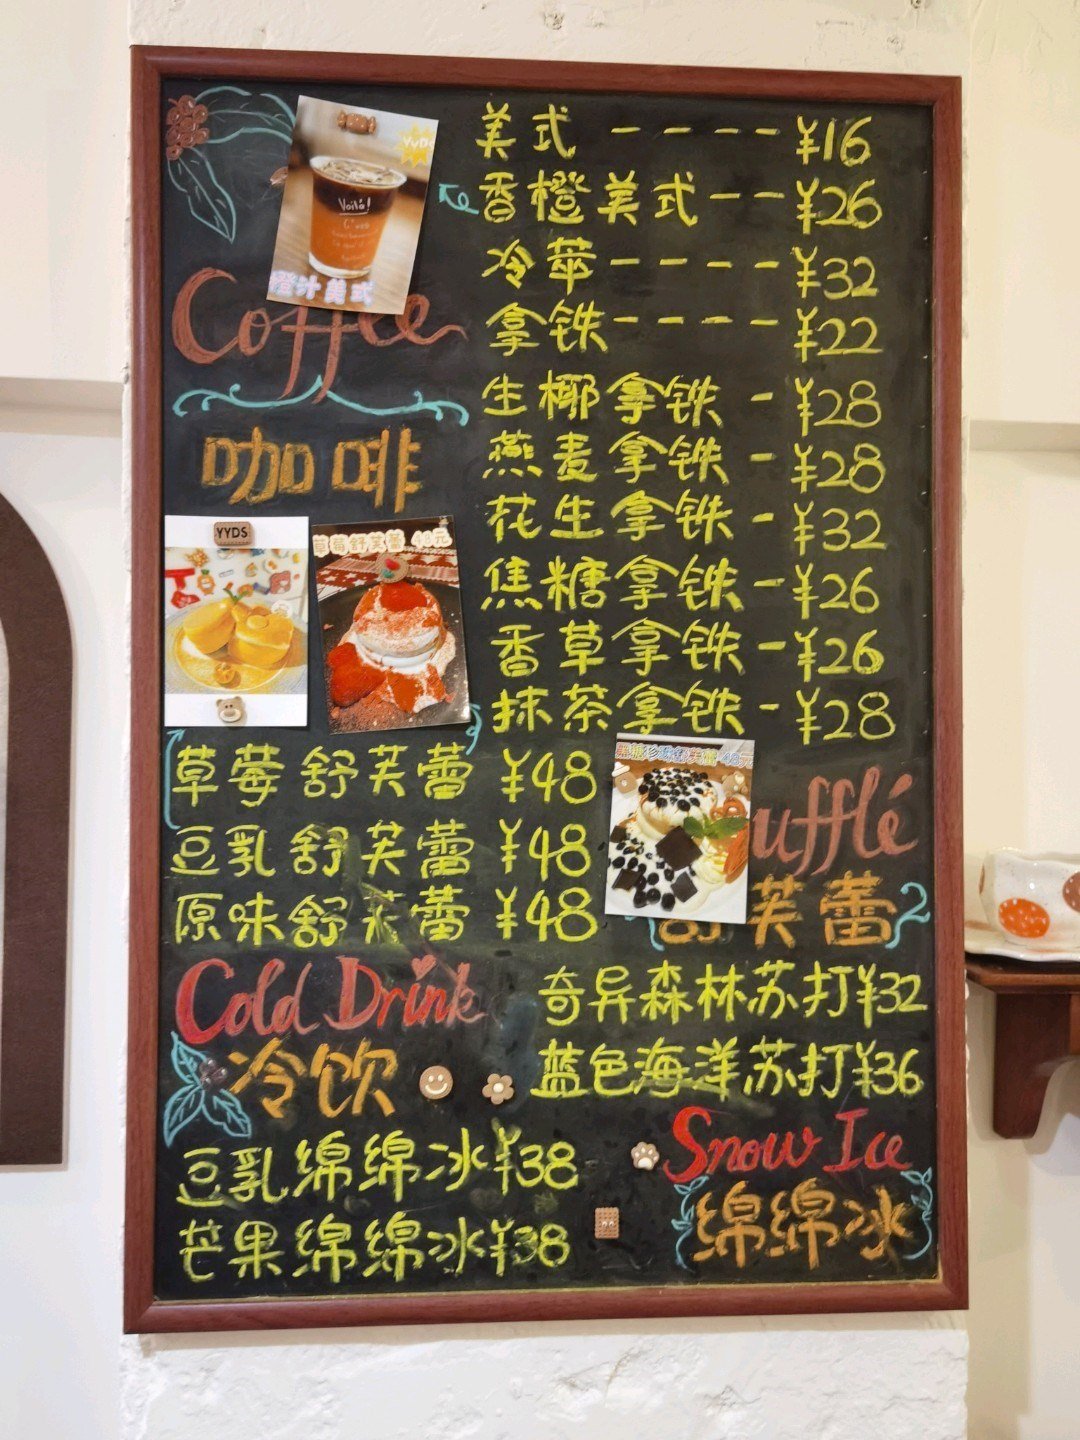 美式 ---- ¥16
香橙美式-- ¥26
冷萃---- ¥32
拿铁---- ¥22
生椰拿铁 - ¥28
燕麦拿铁 - ¥28
花生拿铁 - ¥32
焦糖拿铁 - ¥26
香草拿铁 - ¥26
抹茶拿铁 - ¥28
YYDS
Voilà!
橙汁美式
Coffee
咖啡
YYDS
草莓舒芙蕾 48元
草莓舒芙蕾 ¥48
豆乳舒芙蕾 ¥48
原味舒芙蕾 ¥48
舒芙蕾 48元
ufflé
舒芙蕾
Cold Drink
冷饮
奇异森林苏打¥32
蓝色海洋苏打¥36
Snow Ice
绵绵冰
豆乳绵绵冰¥38
芒果绵绵冰¥38